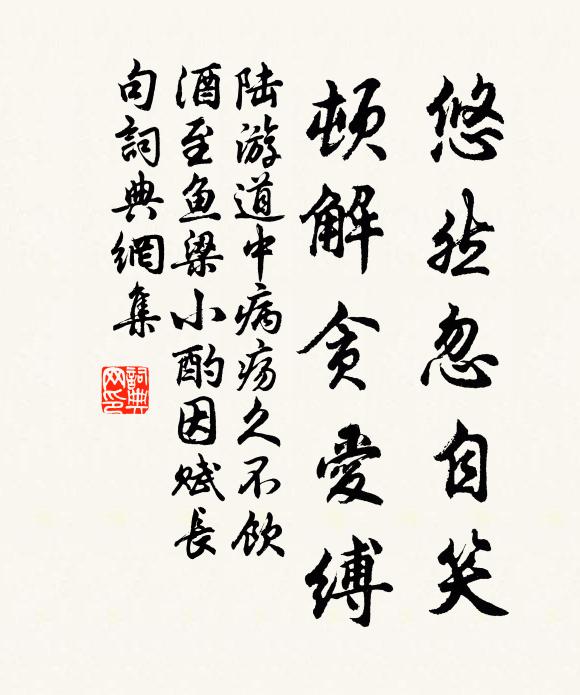 悠然忽自笑
顿解贪愛缚
陆游道中病疡久不飲
酒至鱼梁小酌因赋長
句詞典網集
詞典
网印